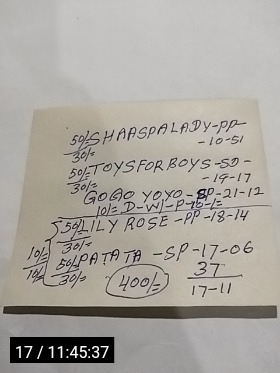 50/= SHAASPALADY-PP
30/= -10-51
50/= TOYSFORBOYS-SD-
30/= -19-17
GOGO YOYO-SP-21-12
10/= D-WI-P-10-1=
50/= LILY ROSE-PP-18-14
10/= 30/=
10/= 50/= PATATA-SP-17-06
30/= 400/= 37
17-11
17 / 11:45:37